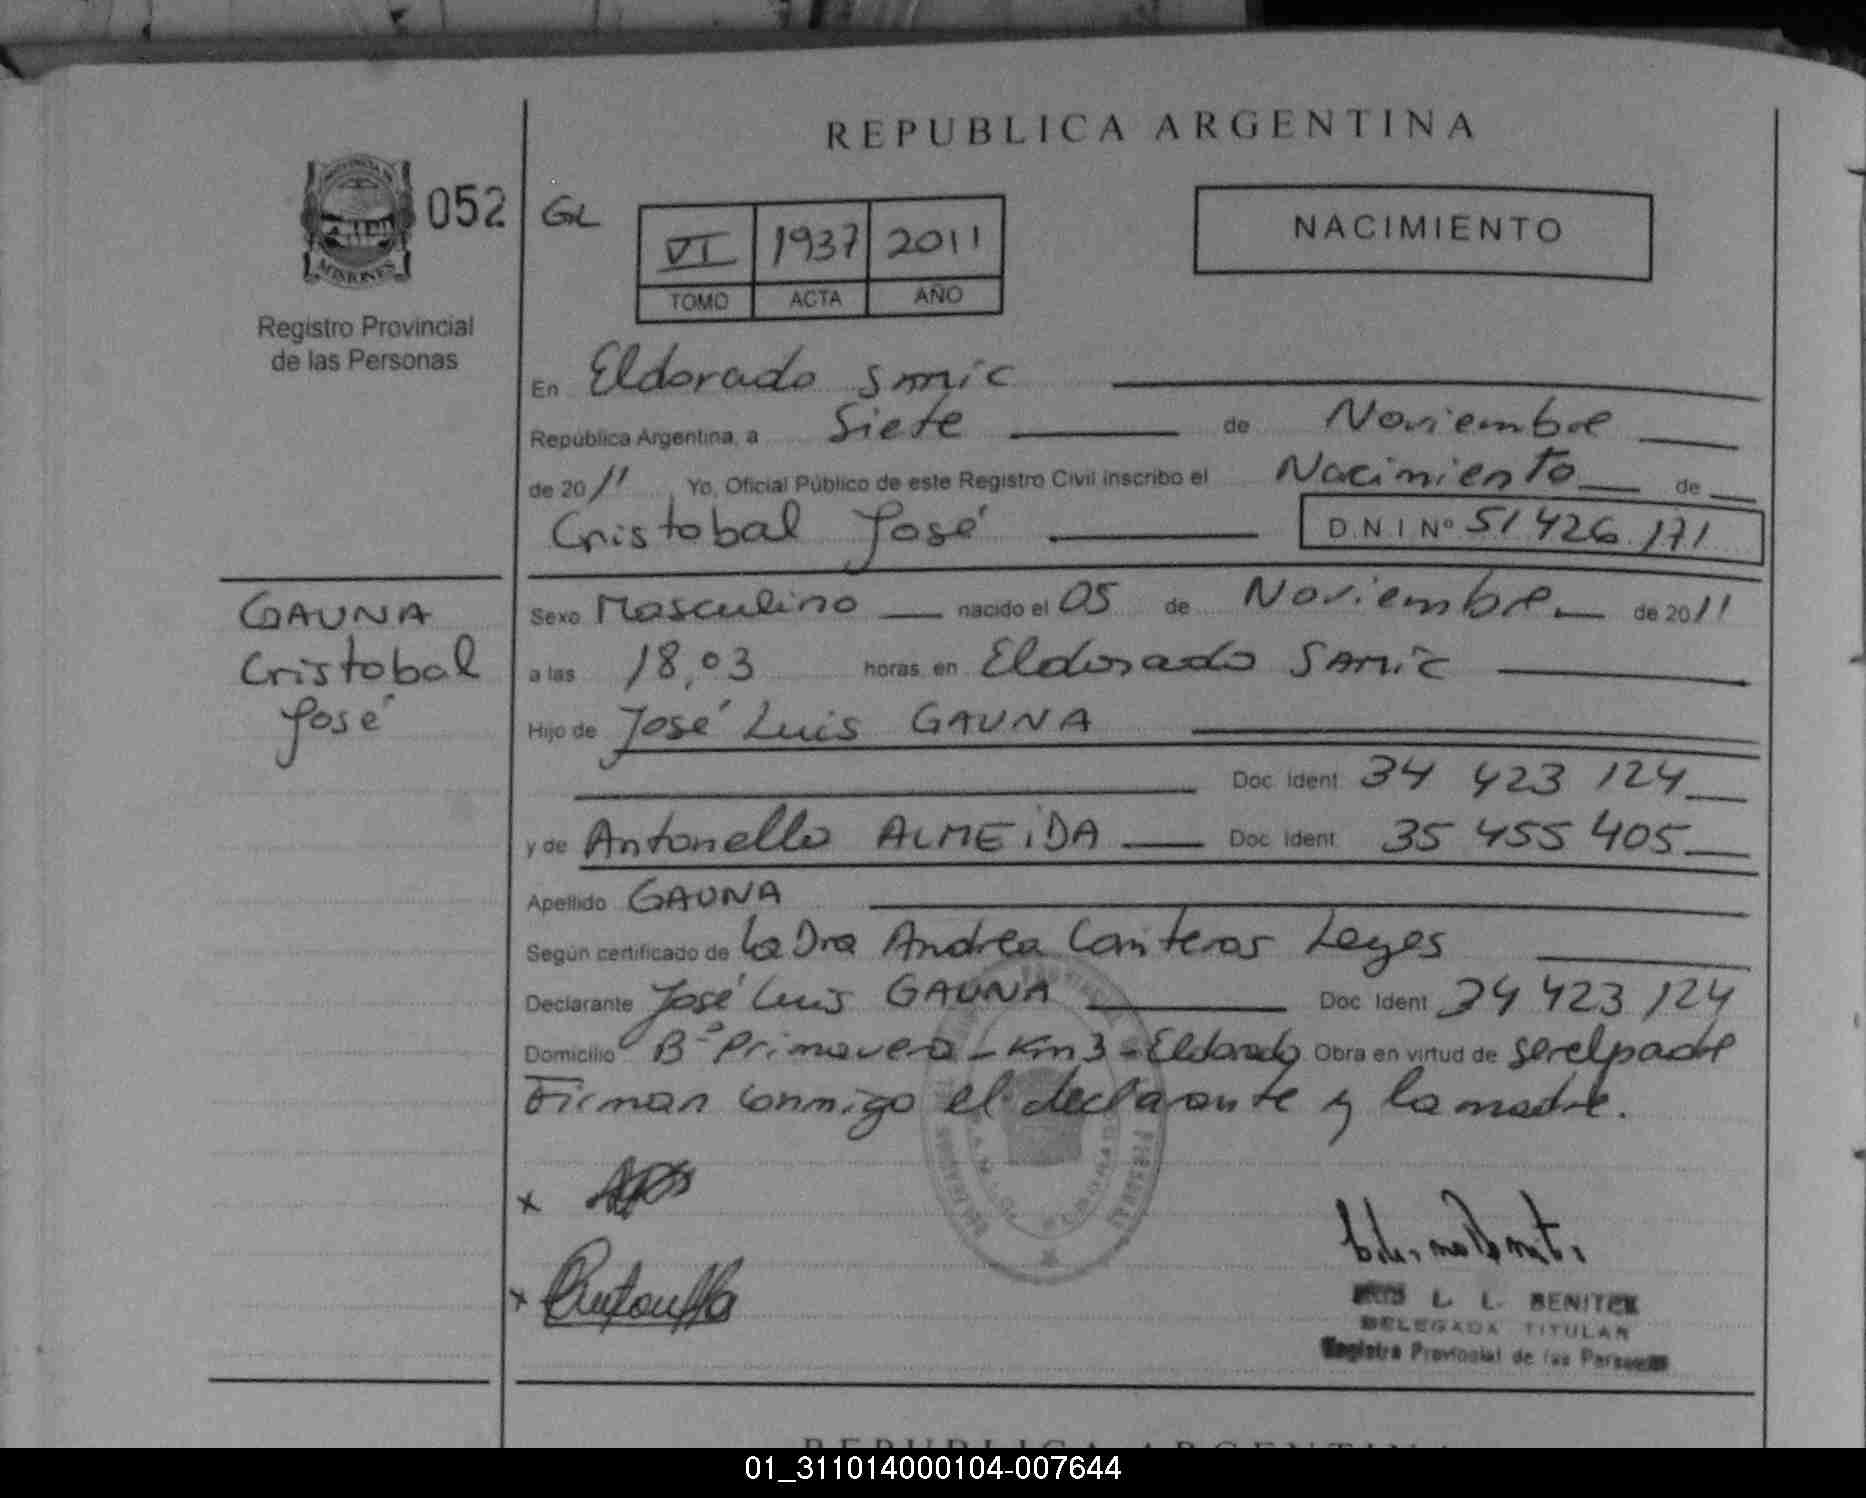 REPUBLICA ARGENTINA
PROVINCIA DE
MISIONES
052
GL
VI 1937 2011
TOMO ACTA AÑO
NACIMIENTO
Registro Provincial
de las Personas
En Eldorado Samic
República Argentina, a Siete de Noviembre
de 2011 Yo, Oficial Público de este Registro Civil inscribo el Nacimiento de
Cristobal José D.N.I Nº 51 426 171
GAUNA
Cristobal
José
Sexo Masculino nacido el 05 de Noviembre de 2011
a las 18,03 horas en Eldorado SAMIC
Hijo de José Luis GAUNA
Doc. Ident. 34 423 124
y de Antonella ALMEiDA Doc. Ident. 35 455 405
Apellido GAUNA
Según certificado de La Dra Andrea Canteros Leyes
Declarante José Luis GAUNA Doc. Ident. 34 423 124
Domicilio Bº Primavera - Km 3 - Eldorado Obra en virtud de ser el padre
Firman conmigo el declarante y la madre.
x
x Antonella
L. L. BENITEZ
DELEGADA TITULAR
Registro Provincial de las Personas
REPUBLICA ARGENTINA
01_311014000104-007644